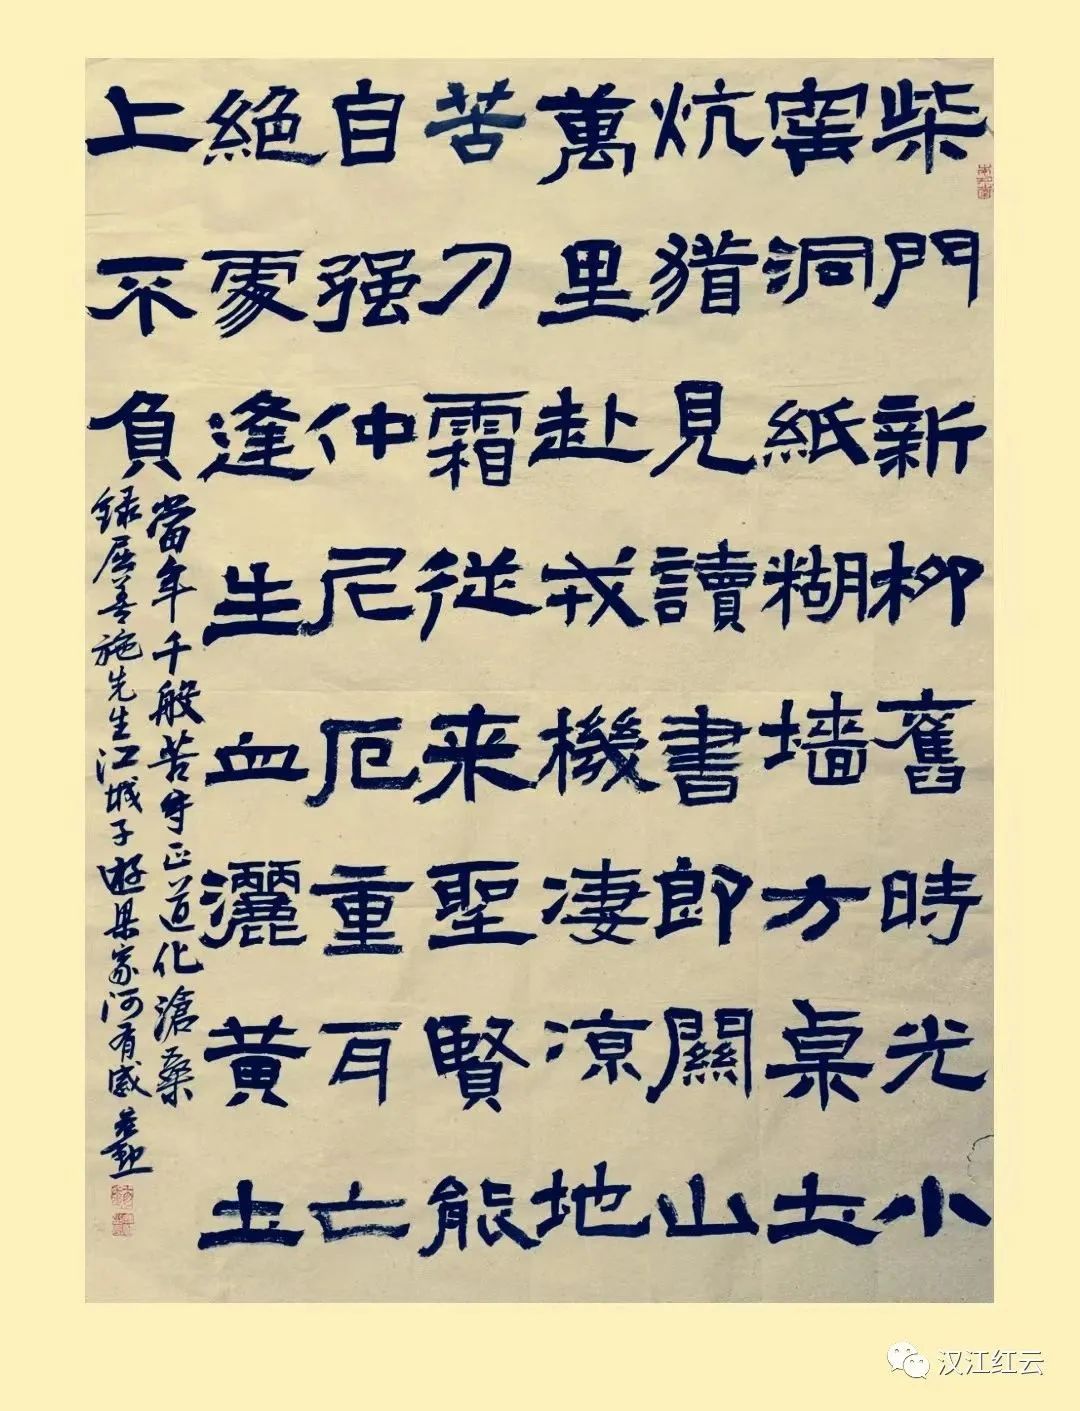 柴門新柳舊時光小
窰洞紙糊墙方桌土
炕猶見讀書郎關山
萬里赴戎機凄凉地
苦刀霜從来聖賢能
自强仲尼厄重耳亡
絕處逢生血灑黄土
上不負
當年千般苦守正道化滄桑
錄善施先生江城子遊梁家河有感
汉江红云